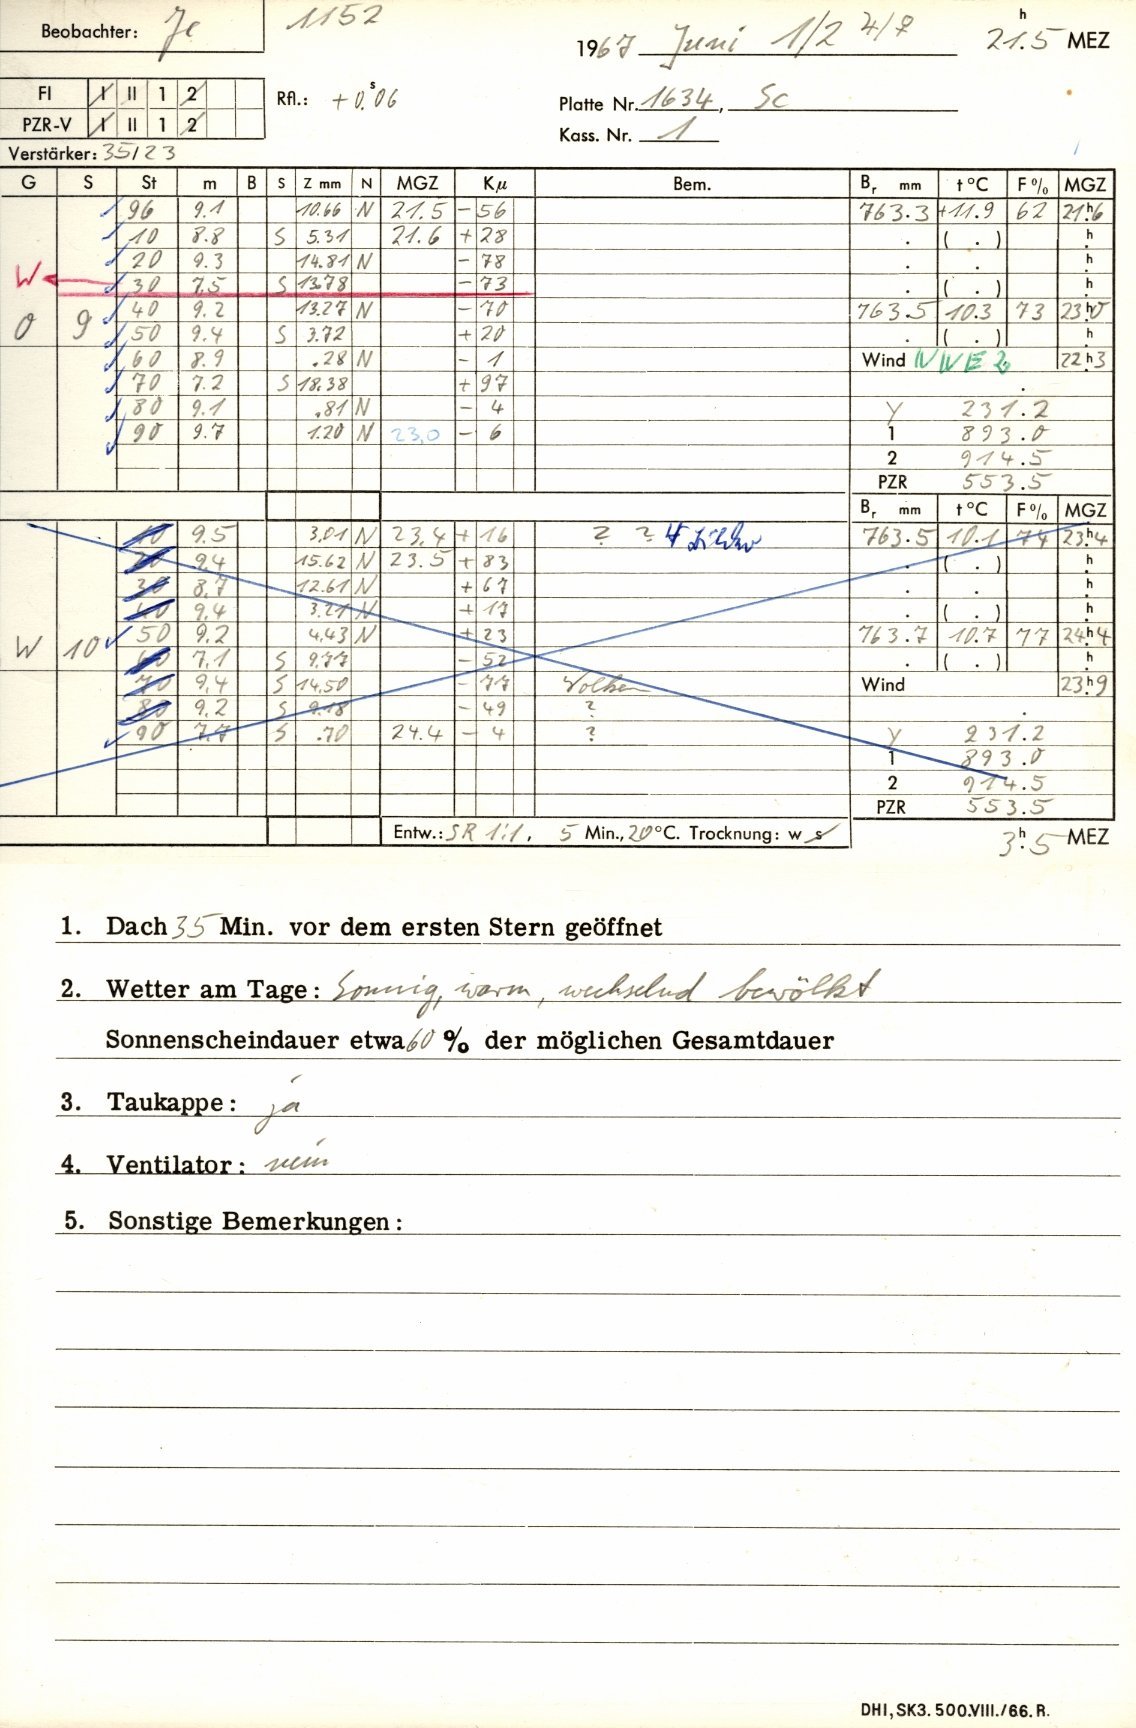 Beobachter: Je 1152
1967 Juni 1/2 4/♀ 21.5 h MEZ
FI I II 1 2 Rfl.: +0.06 s
PZR-V I II 1 2 Platte Nr. 1634, Sc
Kass. Nr. 1
Verstärker: 35/23
G S St m B S Z mm N MGZ Kµ Bem. Br mm t °C F % MGZ
96 9.1 10.66 N 21.5 - 56 763.3 +11.9 62 21h6
10 8.8 S 5.31 21.6 + 28 . ( . ) h
20 9.3 14.81 N - 78 . . h
W 30 7.5 S 13.78 - 73 . ( . ) h
40 9.2 13.27 N - 70 763.5 10.3 73 23h0
O 9 50 9.4 S 3.72 + 20 . ( . ) h
60 8.9 .28 N - 1 Wind NWE 2 22h3
70 7.2 S 18.38 + 97 .
80 9.1 .81 N - 4 Y 231.2
90 9.7 1.20 N 23,0 - 6 1 893.0
2 914.5
PZR 553.5
Br mm t °C F % MGZ
10 9.5 3.01 N 23.4 + 16 ? ? 763.5 10.1 74 23h4
20 9.4 15.62 N 23.5 + 83 . ( . ) h
30 8.7 12.61 N + 67 . . h
40 9.4 3.21 N + 17 . ( . ) h
W 10 50 9.2 4.43 N + 23 763.7 10.7 77 24h4
60 7.1 S 9.77 - 52 . ( . ) h
70 9.4 S 14.50 - 77 Wolken Wind 23h9
80 9.2 S 9.18 - 49 ? .
90 7.7 S .70 24.4 - 4 ? Y 231.2
1 893.0
2 914.5
PZR 553.5
Entw.: SR 1:1, 5 Min., 20°C. Trocknung: w s 3.5 h MEZ
1. Dach 35 Min. vor dem ersten Stern geöffnet
2. Wetter am Tage: Sonnig, warm, wechselnd bewölkt
Sonnenscheindauer etwa 60 % der möglichen Gesamtdauer
3. Taukappe: ja
4. Ventilator: nein
5. Sonstige Bemerkungen:
DHI, SK3. 500.VIII./66. R.